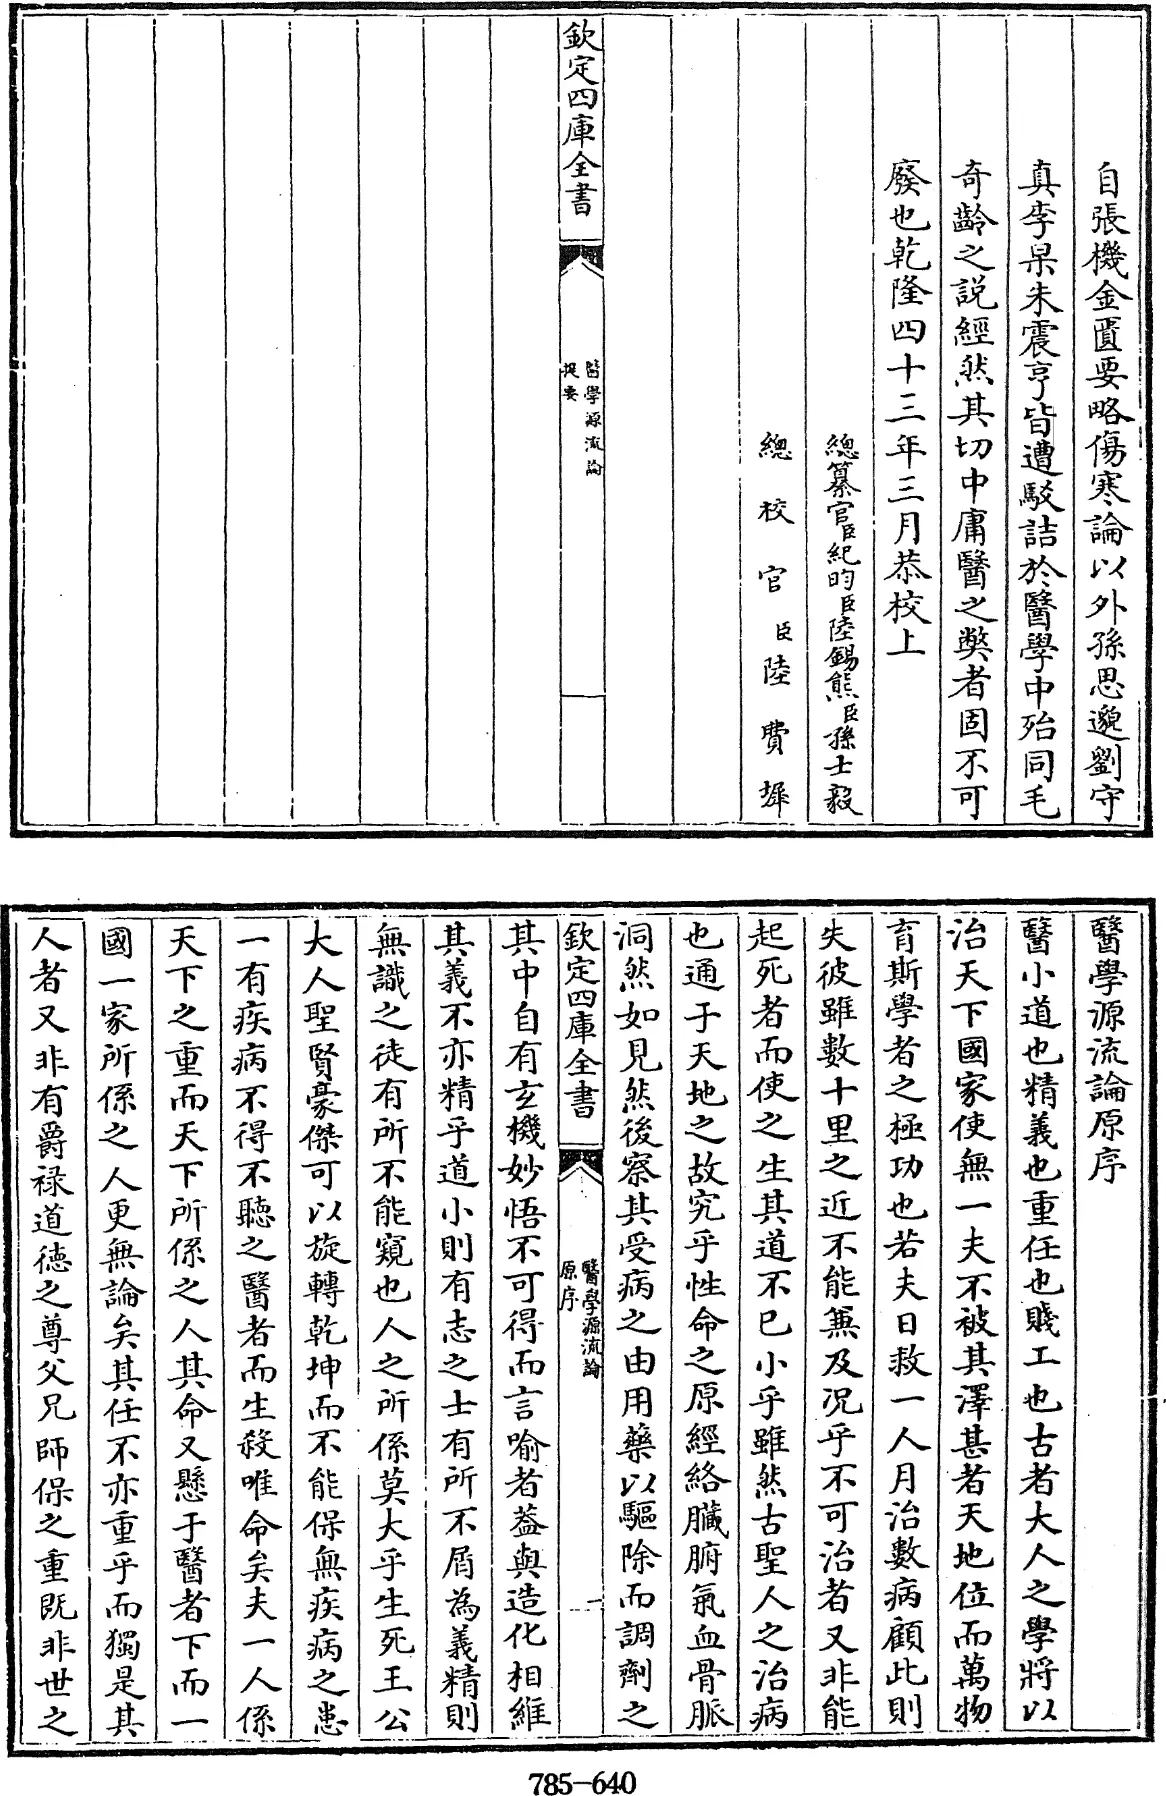 自張機金匱要略傷寒論以外孫思邈劉守
真李杲朱震亨皆遭駁詰於醫學中殆同毛
奇齡之説經然其切中庸醫之獘者固不可
廢也乾隆四十三年三月恭校上
總纂官臣紀昀臣陸錫熊臣孫士毅
總校官臣陸費墀
欽定四庫全書
醫學源流論
提要
醫學源流論原序
醫小道也精義也重任也賤工也古者大人之學將以
治天下國家使無一夫不被其澤甚者天地位而萬物
育斯學者之極功也若夫日救一人月治數病顧此則
失彼雖數十里之近不能兼及況乎不可治者又非能
起死者而使之生其道不已小乎雖然古聖人之治病
也通于天地之故究乎性命之原經絡臟腑氣血骨脈
洞然如見然後察其受病之由用藥以驅除而調劑之
欽定四庫全書
醫學源流論
原序
一
其中自有玄機妙悟不可得而言喻者蓋與造化相維
其義不亦精乎道小則有志之士有所不屑為義精則
無識之徒有所不能窺也人之所係莫大乎生死王公
大人聖賢豪傑可以旋轉乾坤而不能保無疾病之患
一有疾病不得不聽之醫者而生殺唯命矣夫一人係
天下之重而天下所係之人其命又懸于醫者下而一
國一家所係之人更無論矣其任不亦重乎而獨是其
人者又非有爵禄道德之尊父兄師保之重既非世之
785-640